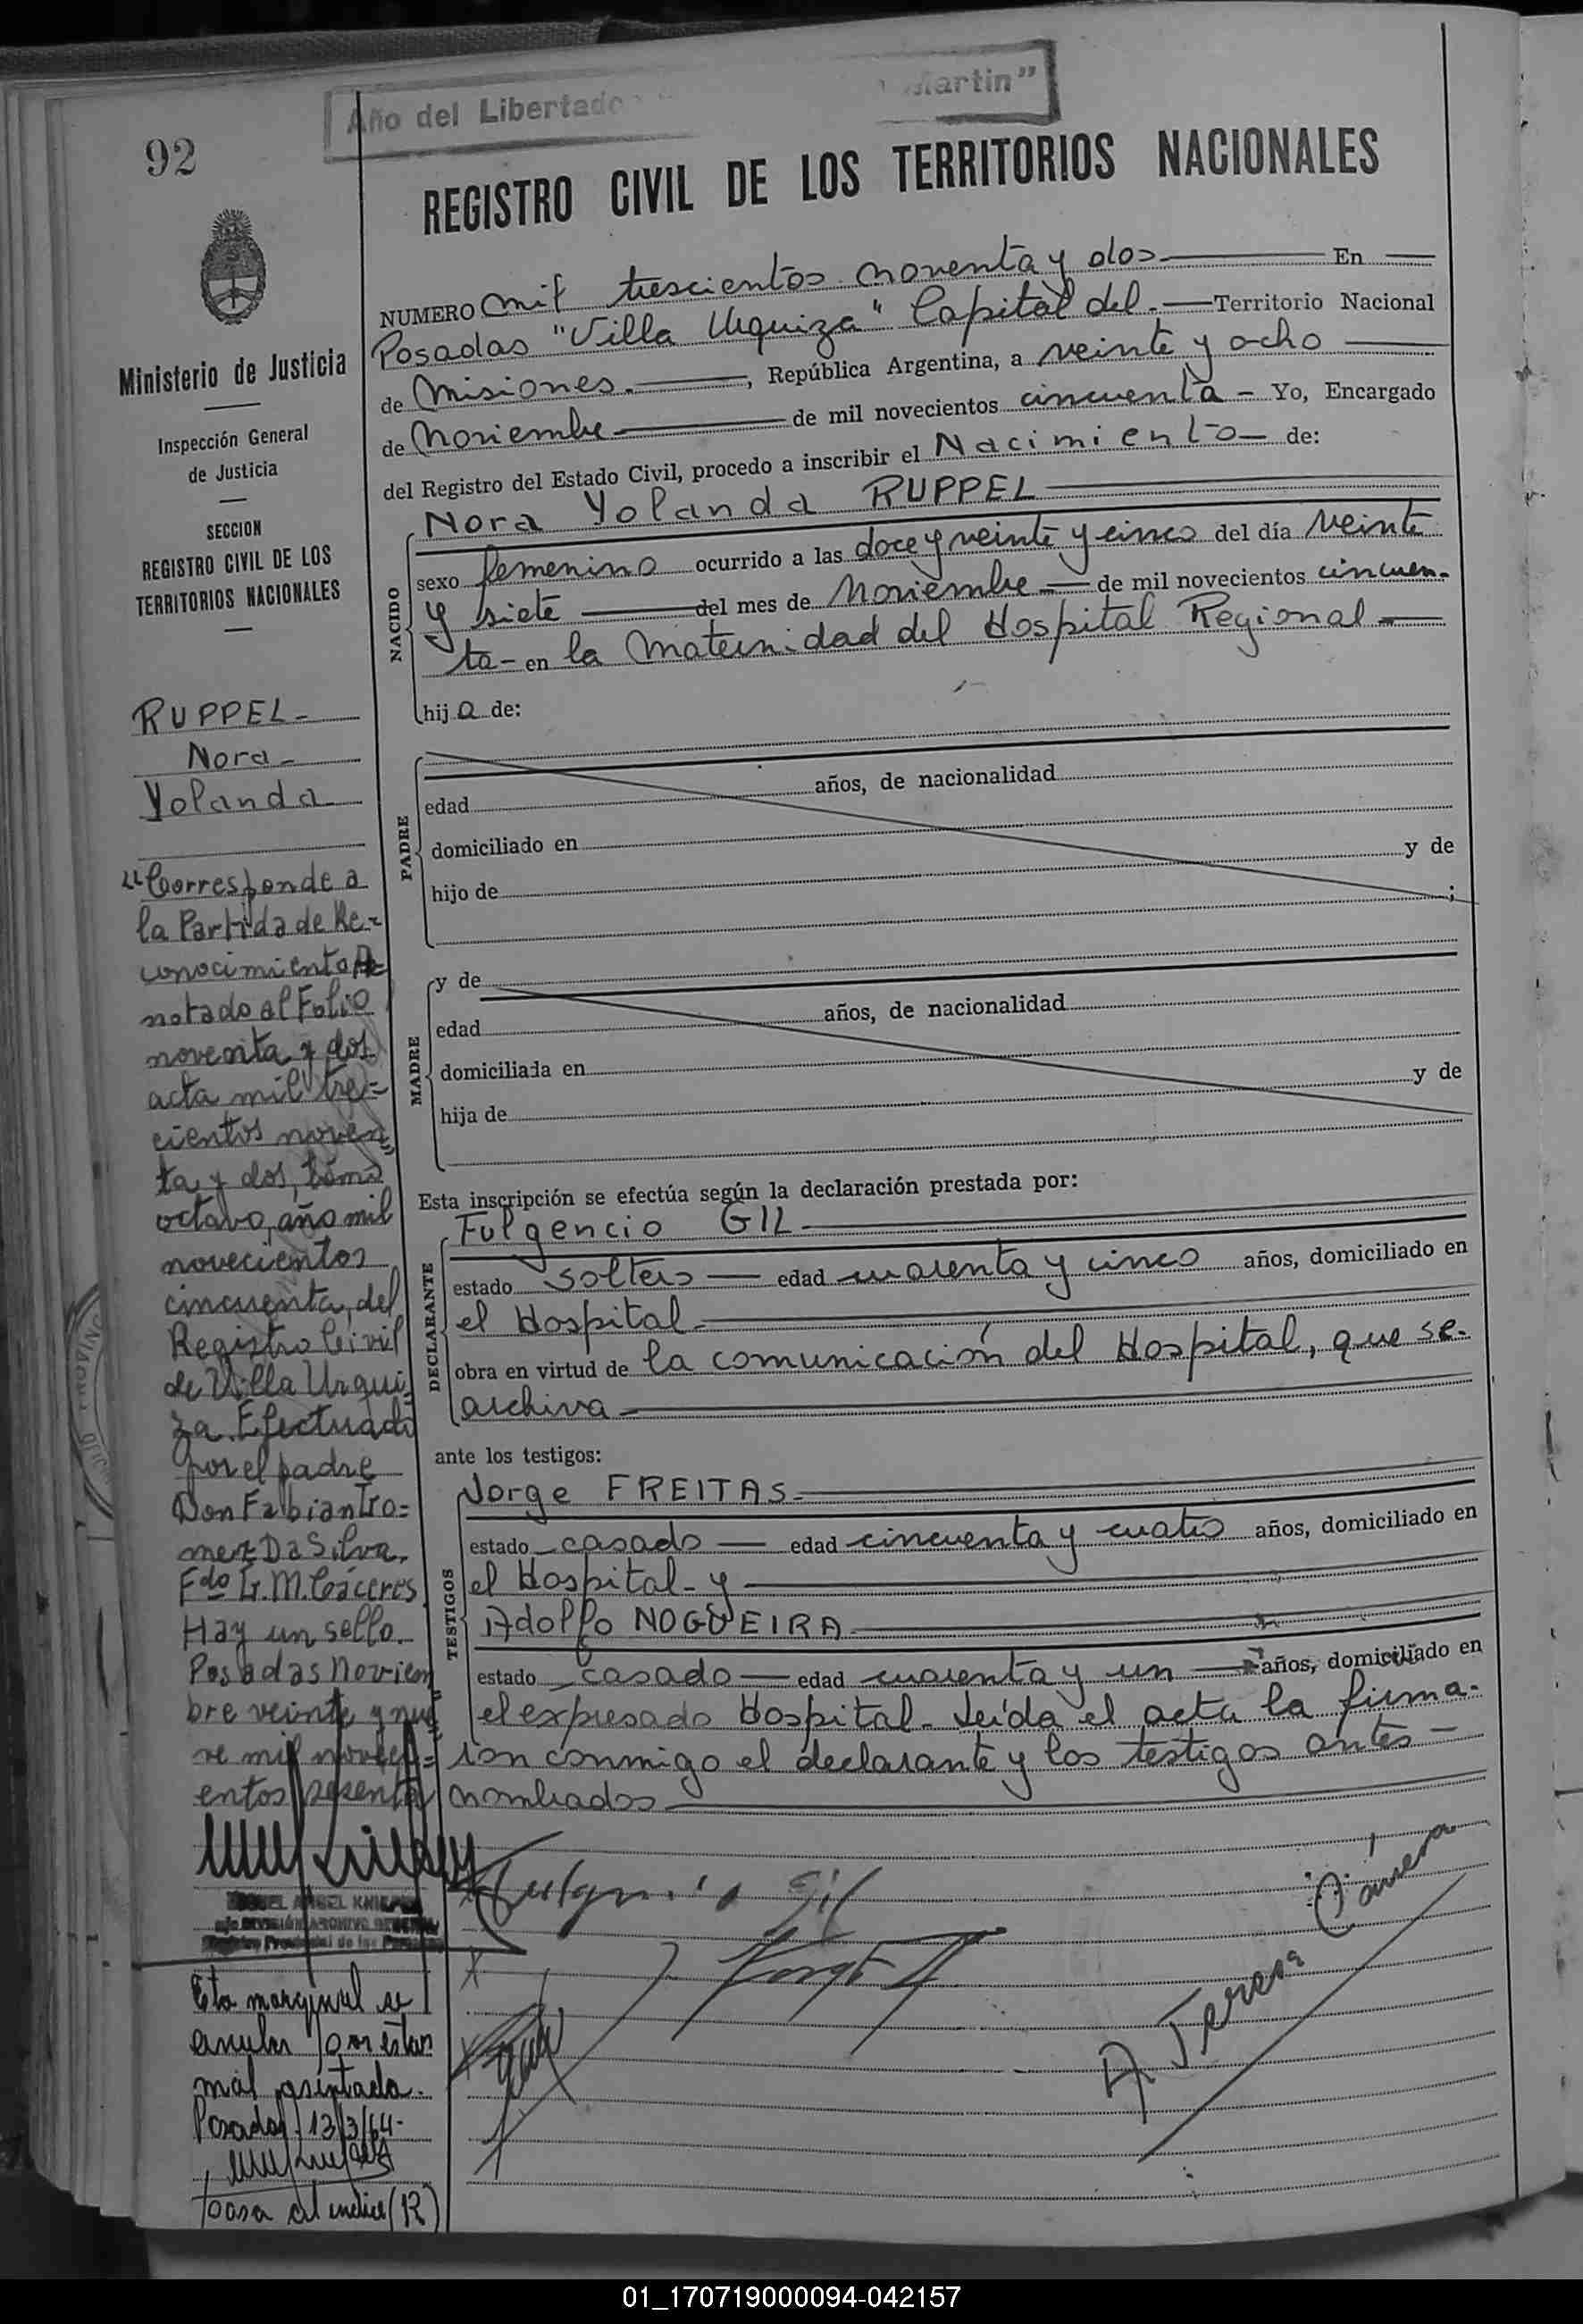 Año del Libertador Martin"
92
REGISTRO CIVIL DE LOS TERRITORIOS NACIONALES
NUMERO mil trescientos noventa y dos En
Posadas "Villa Urquiza" Capital del Territorio Nacional
de Misiones. , República Argentina, a veinte y ocho
de Noviembre de mil novecientos cincuenta - Yo, Encargado
del Registro del Estado Civil, procedo a inscribir el Nacimiento de:
Ministerio de Justicia
Inspección General
de Justicia
SECCION
REGISTRO CIVIL DE LOS
TERRITORIOS NACIONALES
NACIDO
Nora Yolanda RUPPEL
sexo femenino ocurrido a las doce y veinte y cinco del día veinte
y siete del mes de Noviembre de mil novecientos cincuen-
ta - en la Maternidad del Hospital Regional
hija de:
RUPPEL-
Nora-
Yolanda
PADRE
edad años, de nacionalidad
domiciliado en
hijo de y de
;
MADRE
y de
edad años, de nacionalidad
domiciliada en
hija de y de
Esta inscripción se efectúa según la declaración prestada por:
DECLARANTE
Fulgencio GIL
estado soltero edad cuarenta y cinco años, domiciliado en
el Hospital
obra en virtud de la comunicación del Hospital, que se-
archiva
ante los testigos:
TESTIGOS
Jorge FREITAS
estado casado edad cincuenta y cuatro años, domiciliado en
el Hospital - y
Adolfo NOGUEIRA
estado casado edad cuarenta y un años, domiciliado en
el expresado Hospital - Leída el acta la firma-
ron conmigo el declarante y los testigos antes
nombrados
"Corresponde a
la Partida de Re=
conocimiento A=
notado al Folio
noventa y dos
acta mil tre=
cientos noven
ta y dos, tomo
octavo, año mil
novecientos
cincuenta, del
Registro Civil
de Villa Urqui
za. Efectuado
por el padre
Don Fabian Tro=
mez Da Silva.
Fdo G. M. Cáceres.
Hay un sello.
Posadas Noviem
bre veinte y nue
ve mil noveci=
entos sesenta
Esta marginal se
anula por estar
mal asentada.
Posadas 13/3/64-
pasa al indice (R)
Fulgencio Gil
Jorge
A. Teresa
01_170719000094-042157